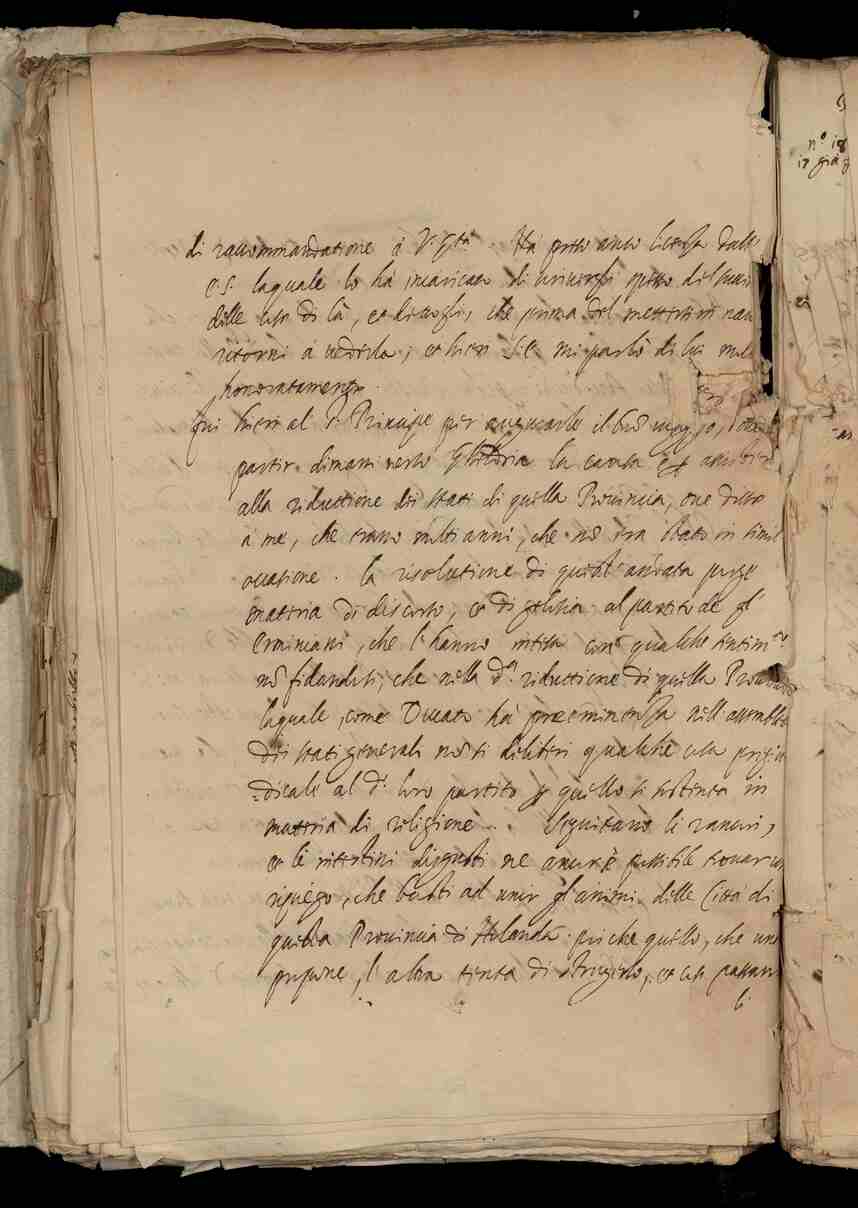 di raccommandatione à V. Stà. Hà preso anco licenza dall'
E.S. laquale lo hà incaricato di scriverli spesso
delle cose di là, et dettogli, che prima del mettersi in nau
ritorni à vederla; et hieri S.E. mi parlò di lui molto
honoratamente.
fui hieri al Sr Principe per augurarle il bon viaggio, dovendo
partir dimani verso Gheldria la causa è per assister
alla riduttione dei stati di quella Provincia, ove disse
à me, che erano molti anni, che nõ era stato in simil
occasione. la risolutione di quest'andata porge
materia di discorso, et di gelosia al partito de gl'
Erminiani, che l'hanno intesa con qualche sentimto
nõ fidandosi, che nella da riduttione di quella Provincia
laquale, come Ducato hà preeminenza nell'assemblea
dei stati generali nõ si deliberi qualche cosa pregiu
=dicale al do loro partito per quello si sostenta in
materia di religione. Seguitano li rancori,
et le intestini disgusti ne ancor è possibile trovar un
ripiego, che basti ad unir gl'animi delle Città di
questa Provincia di Holanda. poiche quello, che una
propone, l'altra tenta di distrugerlo, et cosi passan
n.o 18